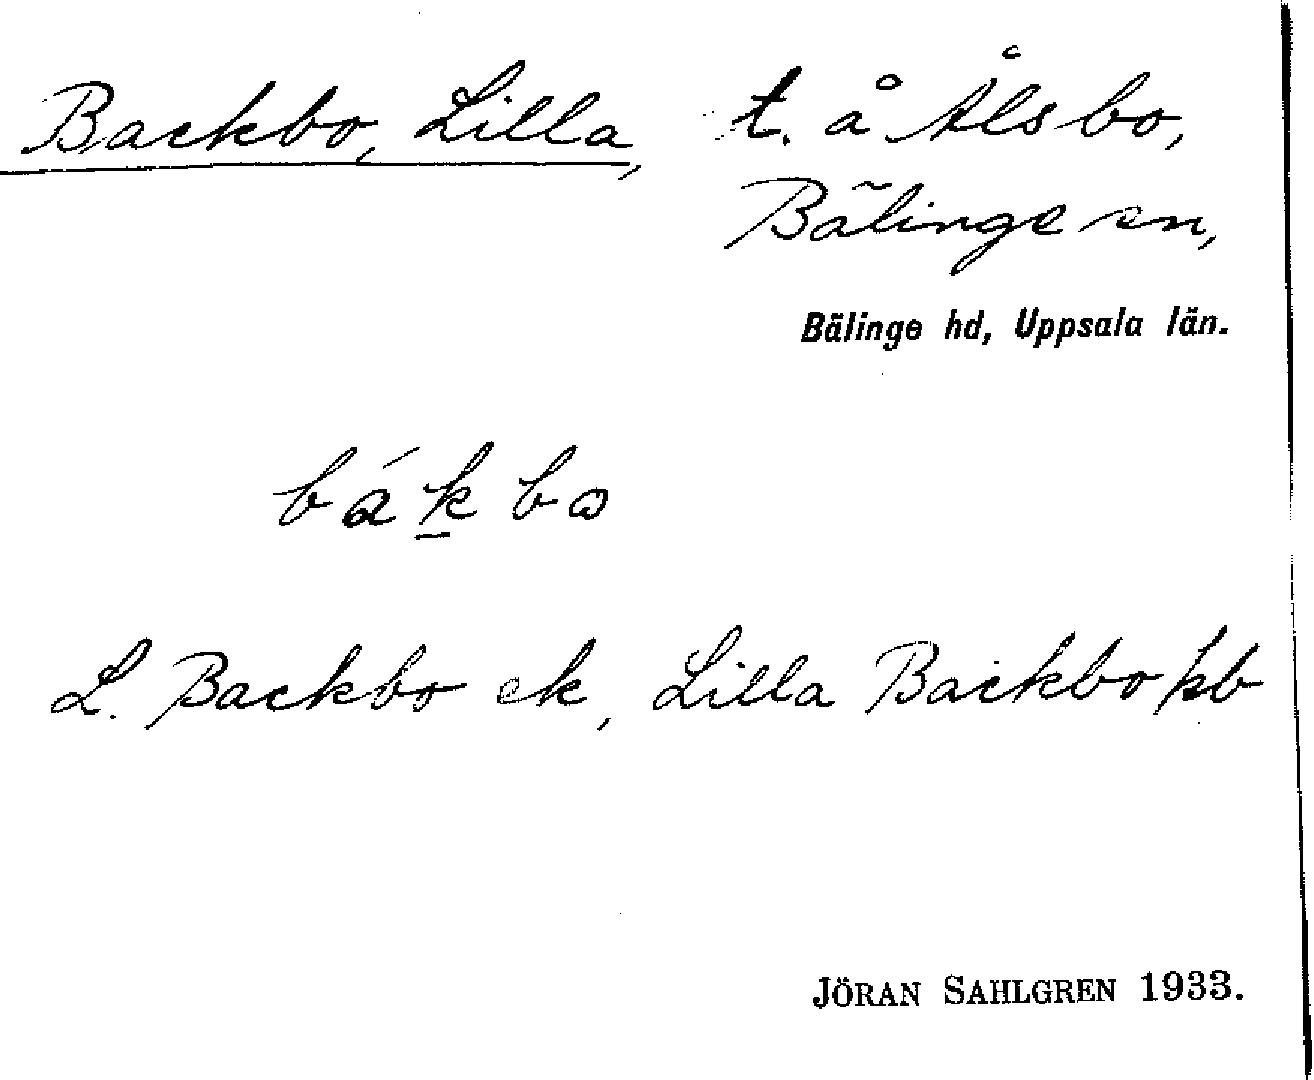 Backbo, Lilla, t. å Ålsbo,
Bälinge sn,
Bälinge hd, Uppsala län.
bákbo
L. Backbo ek, Lilla Backbo jb
JÖRAN SAHLGREN 1933.